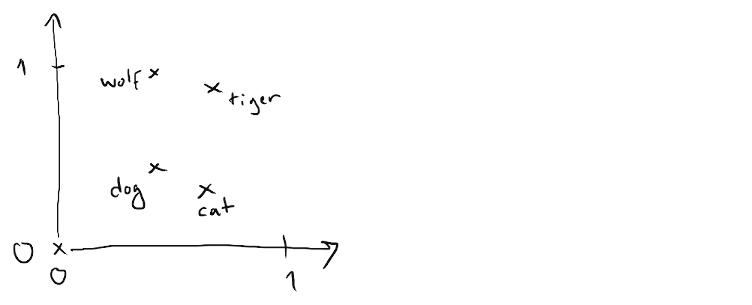 1
wolf
tiger
dog
cat
0
0
1